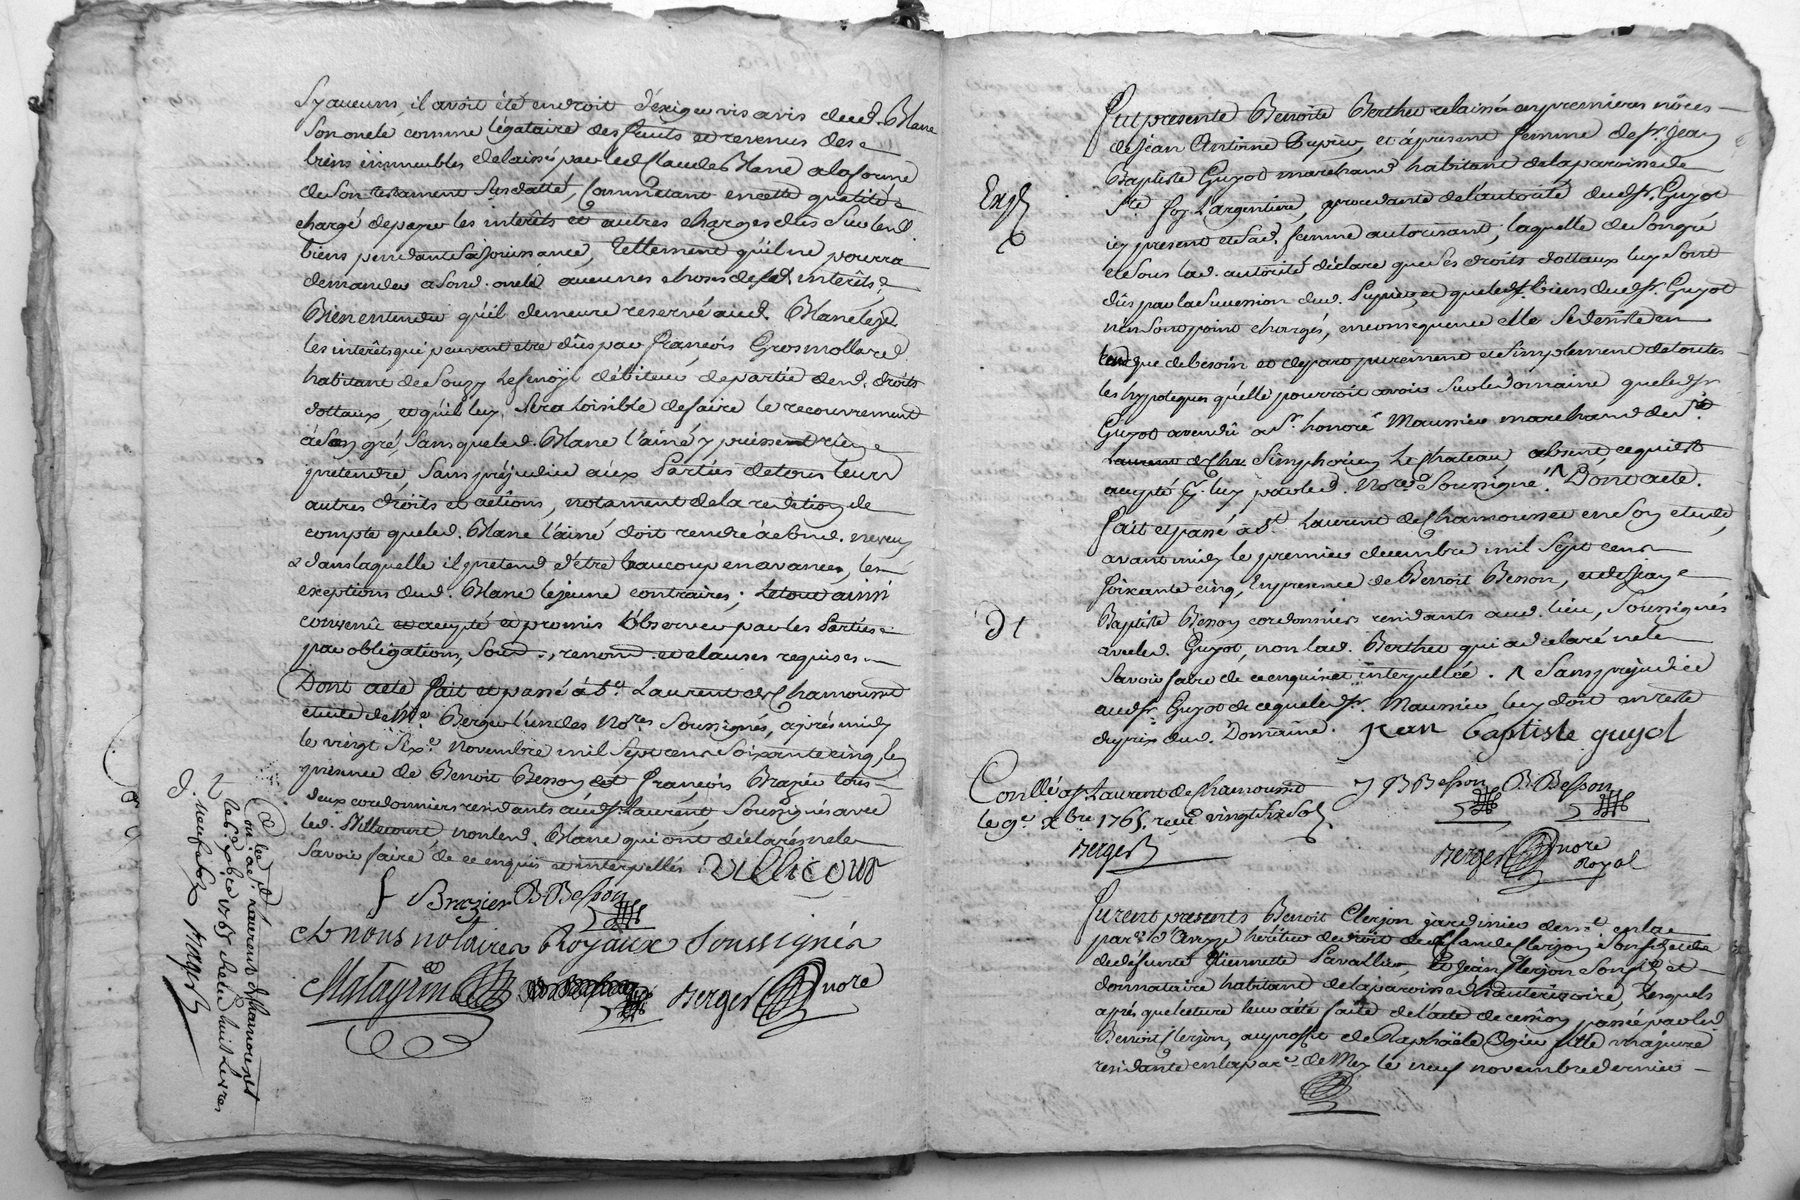 Sy aucuns, il avoit été en droit d'exiger vis avis dud. Blanc
Son oncle comme légataire des fruits et revenus des
biens immeubles delaissés par led. Claude Blanc a la forme
de Son testament Susdatté, Comm'etant en cette qualité
chargé de payer les intérêts et autres charges dûes Sur lesd.
biens pendant sa Jouissance, tellement qu'il ne pourra
demander a Sond. oncle aucunes choses desd. intérêts
Bien entendu qu'il demeure reservé aud. Blanc lejeᵉ
les intérêts qui peuvent etre dûs par françois Grosmollard
habitant de Souzy debiteur de partie desd. droits
dottaux, et qu'il luy Sera loisible de faire le recouvrement
à Son gré, Sans que led. Blanc l'ainé y puisse rien
pretendre, Sans préjudice aux Parties de tous leurs
autres droits et actions, notament de la redition de
compte que led. Blanc l'ainé doit rendre à Sond. neveu
& dans laquelle il pretend d'être beaucoup en avances, les
exceptions dud. Blanc le jeune contraires; le tout ainsi
convenû et accepté et promis l'observer par les Parties
par obligations, Soum. , renonᵒⁿ. et clauses requises
Dont acte fait et passé à Sᵗ. Laurent de Chamousset
etude de Mᵉ Berger l'un des Noʳᵉˢ Soussignés, aprés midy
le vingt Sixᵉ. Novembre mil Sept cens Soixante cinq, En
presence de Benoit Besson, et françois Brazier tous
deux cordonniers residants aud. S. Laurent, Soussignés avec
led. Villecourt non lesd. Blanc qui ont déclarés ne le
Savoir faire de ce enquis et interpellés. Villicour
f Brazier B Besson
et nous notaires Royaux Soussignés
Matagrin Berger nore
Con. a S. Laurent de Chamousset
le 6ᵉ xbre 1765 Receu huit Livres
neuf sols Berger
Fut presente Benoite Berthet relaissée en premieres nôces
de Jean Antoine Dupuy, et à présent femme de Sʳ. Jean
Baptiste Guyot marchand habitant de la paroisse de
Sᵗᵉ foy L'argentiere, procedante de l'autorité dud. Sʳ. Guyot
icy present et Sad. femme autorisant, laquelle de Son gré
et Sous lad. autorité déclare que Ses droits dottaux luy Sont
dûs par la Succession dud. Dupuy, et que les biens dud. Sʳ. Guyot
n'en Sont point chargés, en consequence elle Se desiste en
tant que de besoin et depart purement et Simplement de toutes
les hypoteques qu'elle pourroit avoir Sur le Domaine que led. Sʳ
Guyot a vendû a Sʳ. honoré Maunier marchand de Sᵗ
Simphorien Le Chateau, absent, ce qui est
accepté pʳ. luy par led. Noʳᵉ Soussigné. Λ Dont acte.
fait et passé à Sᵗ. Laurent de Chamousset en Son etude,
avant midy le premier decembre mil Sept cens
Soixante cinq, En presence de Benoit Besson, et de Jean
Baptiste Besson cordonniers residants aud. lieu, Soussignés
avec led. Guyot, non lad. Berthet qui a déclaré ne le
Savoir faire de ce enquise et interpellée. Λ Sans prejudice
aud. Sʳ Guyot de ce que led. Sʳ. Maunier luy doit en reste
du prix dud. Domaine. Jean baptiste guyot
J B Besson B Besson
Con a S. Laurent de Chamousset
le 9ᵉ xbre 1765. receu vingt Six Sols
Berger
Berger nore
Royal
Furent presents Benoit Clerjon jardinier demᵗ. en la
parˢᵉ d'Anzy heritier de droit de Claude Clerjon Son fils et de
de defunte Etiennette Pavallier, et Jean Clerjon Son fils et
donnataire habitant de la paroisse d'hauterivoire, Lesquels
aprés que lecture leur a été faite de l'acte de cession passé par led.
Benoit Clerjon, au proffit de Raphaële Ogier fille majeure
residante en la parˢᵉ. de Mey le neuf novembre dernier